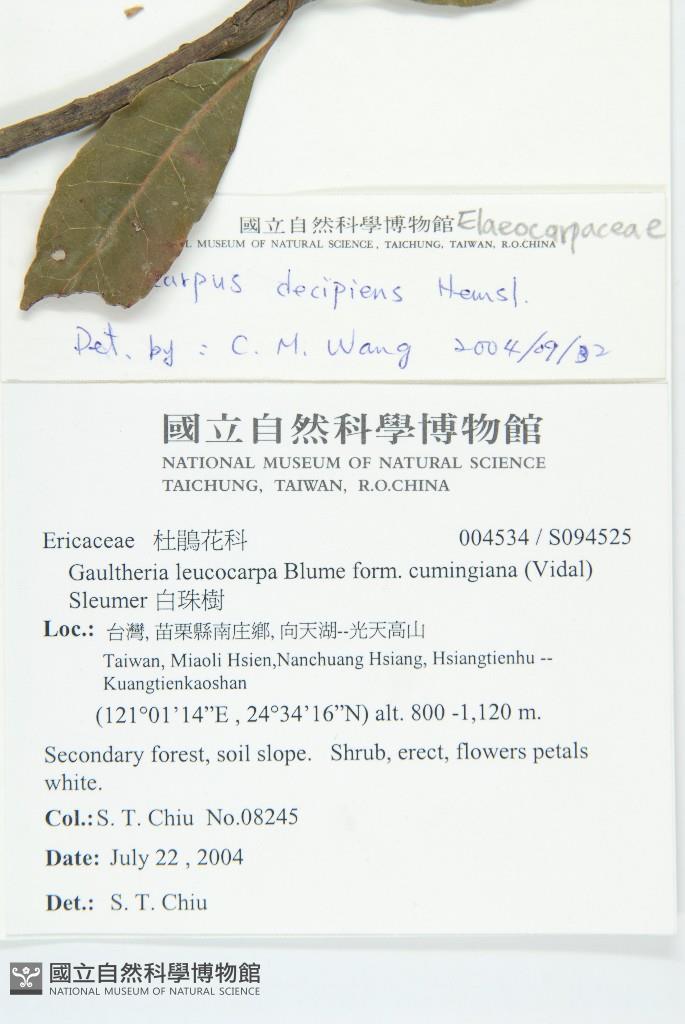 國立自然科學博物館 Elaeocarpaceae
MUSEUM OF NATURAL SCIENCE, TAICHUNG, TAIWAN, R.O.CHINA
carpus decipiens Hemsl.
Det. by : C. M. Wang 2004/09/
國立自然科學博物館
NATIONAL MUSEUM OF NATURAL SCIENCE
TAICHUNG, TAIWAN, R.O.CHINA
Ericaceae 杜鵑花科 004534 / S094525
Gaultheria leucocarpa Blume form. cumingiana (Vidal)
Sleumer 白珠樹
Loc.: 台灣, 苗栗縣南庄鄉, 向天湖--光天高山
Taiwan, Miaoli Hsien,Nanchuang Hsiang, Hsiangtienhu --
Kuangtienkaoshan
(121°01’14”E , 24°34’16”N) alt. 800 -1,120 m.
Secondary forest, soil slope. Shrub, erect, flowers petals
white.
Col.: S. T. Chiu No.08245
Date: July 22 , 2004
Det.: S. T. Chiu
國立自然科學博物館
NATIONAL MUSEUM OF NATURAL SCIENCE